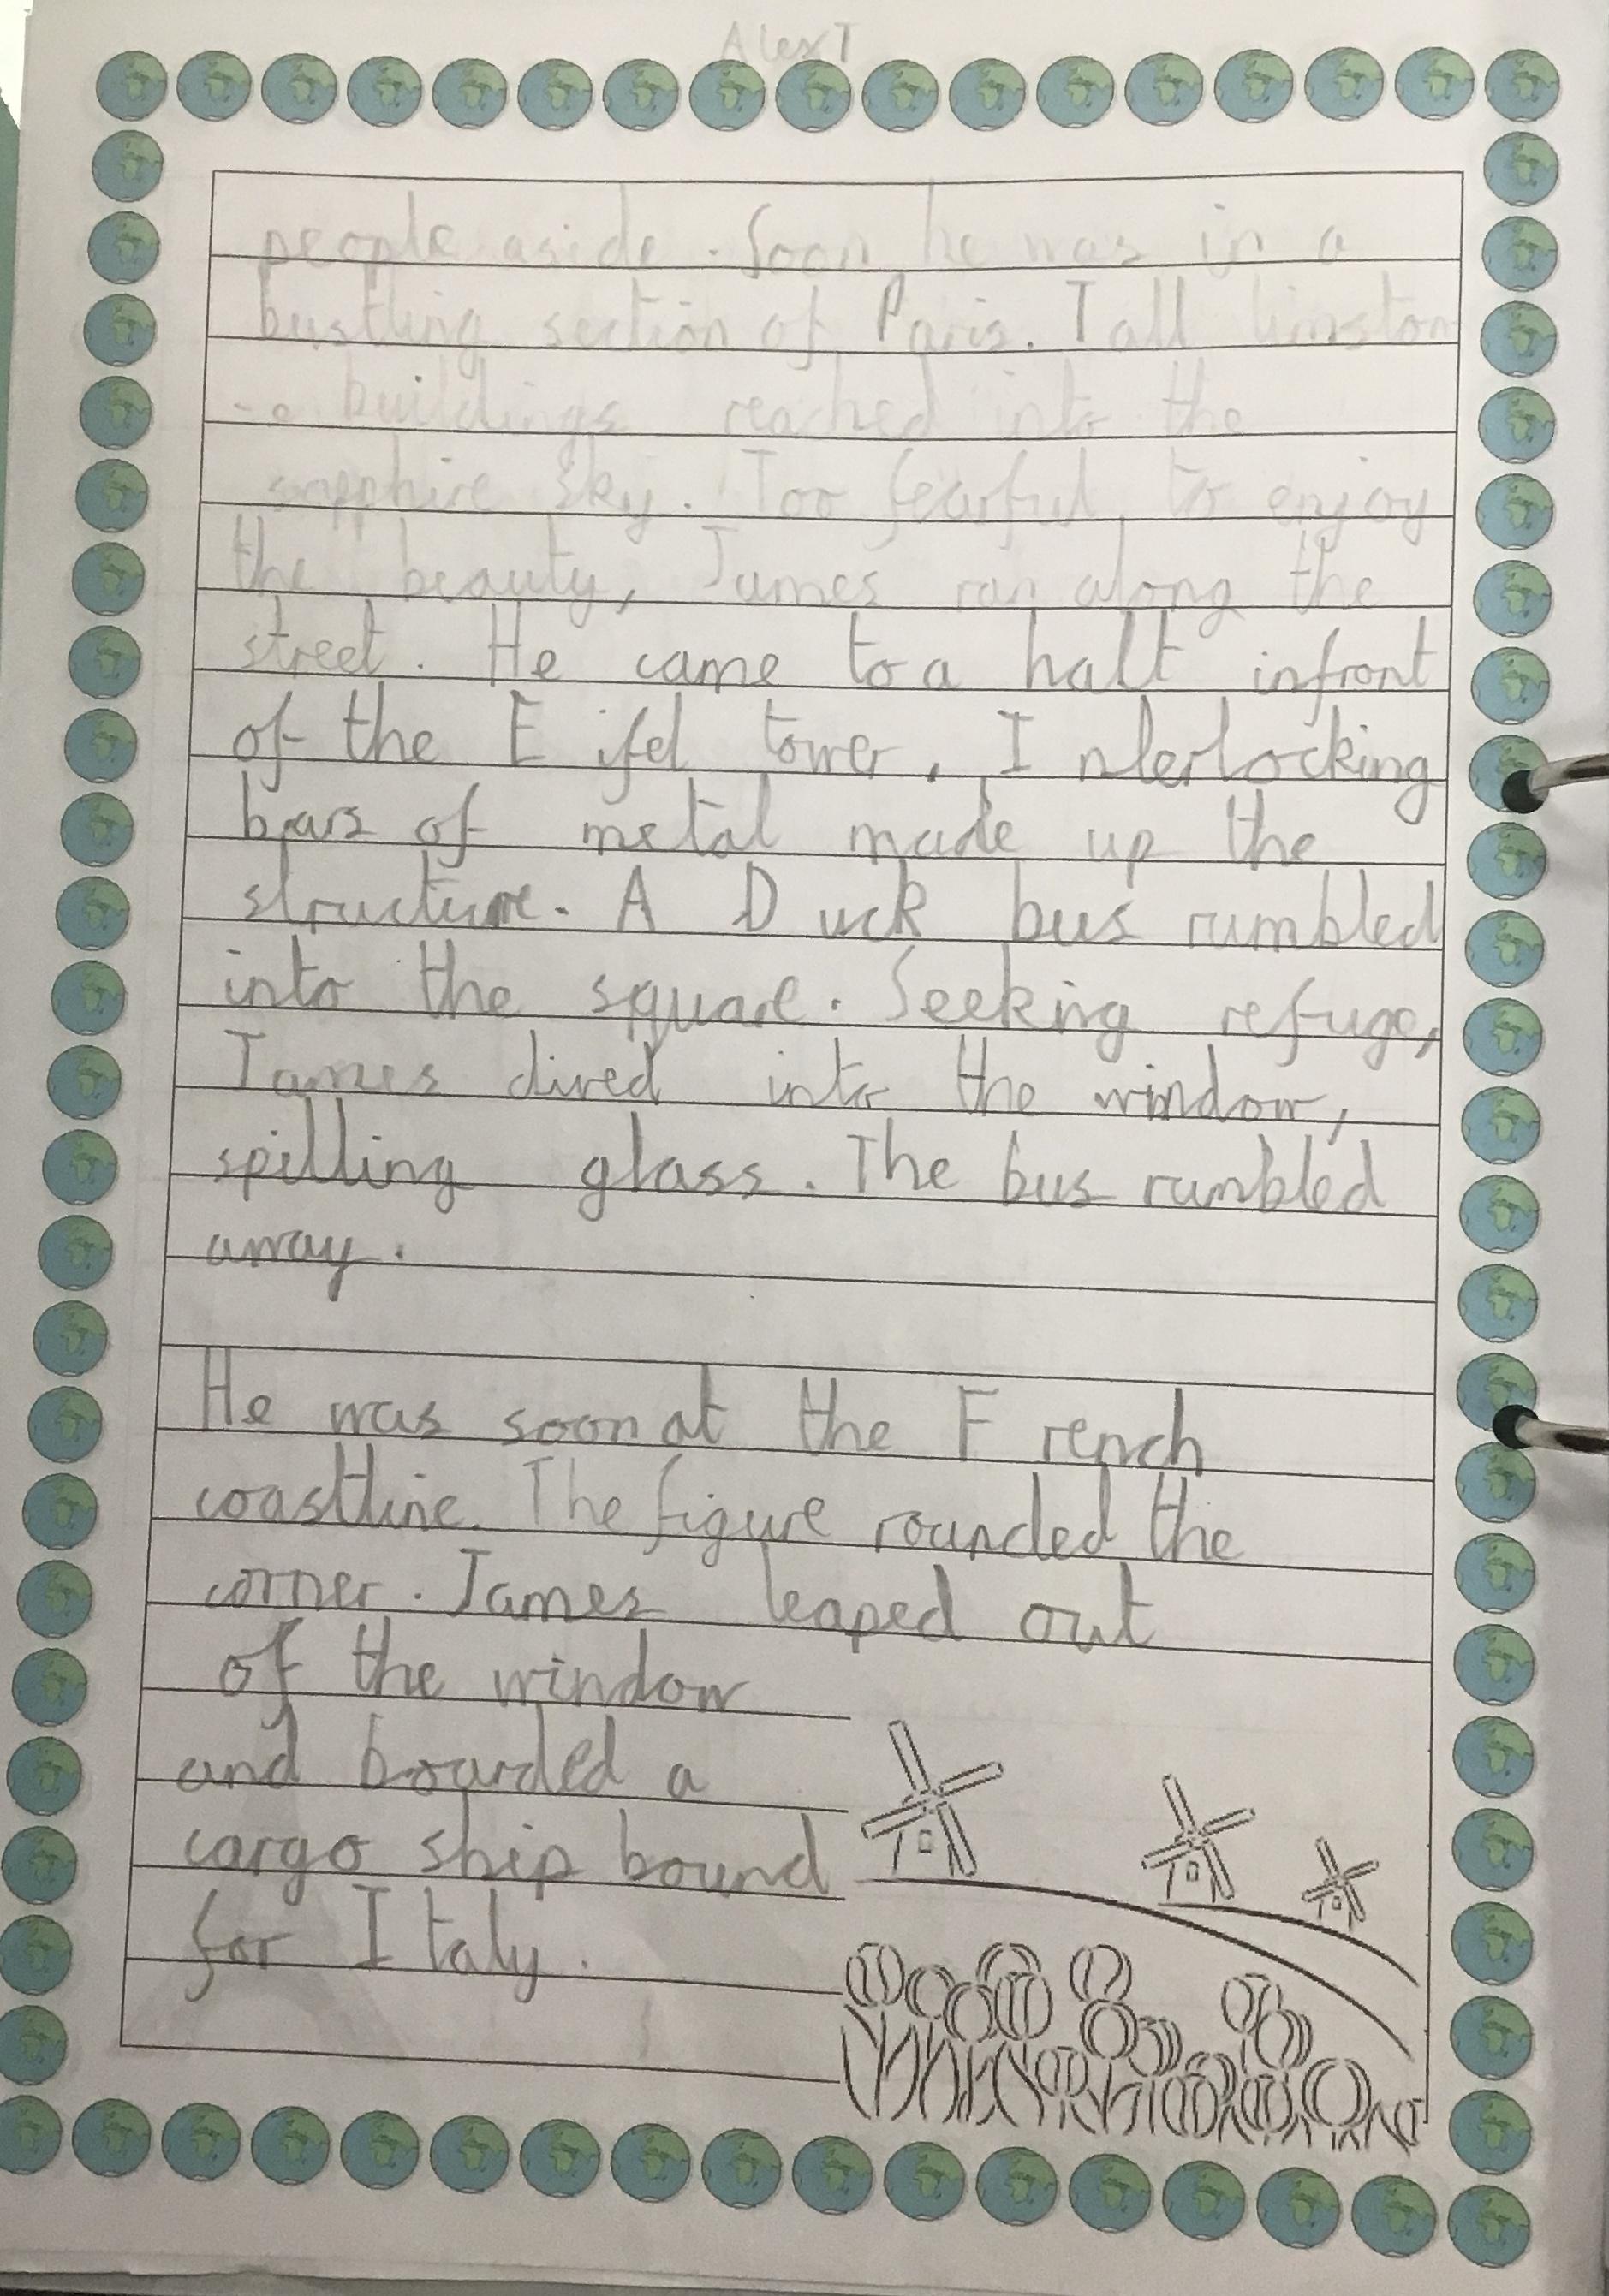 Alex T
people aside. Soon he was in a
bustling section of Paris. Tall limston
-e buildings reached into the
sapphire sky. Too fearful to enjoy
the beauty, James ran along the
street. He came to a halt infront
of the Eifel tower. Interlocking
bars of metal made up the
structure. A Duck bus rumbled
into the square. Seeking refuge,
James dived into the window,
spilling glass. The bus rumbled
away.
He was soon at the French
coastline. The figure rounded the
corner. James leaped out
of the window
and boarded a
cargo ship bound
for Italy.